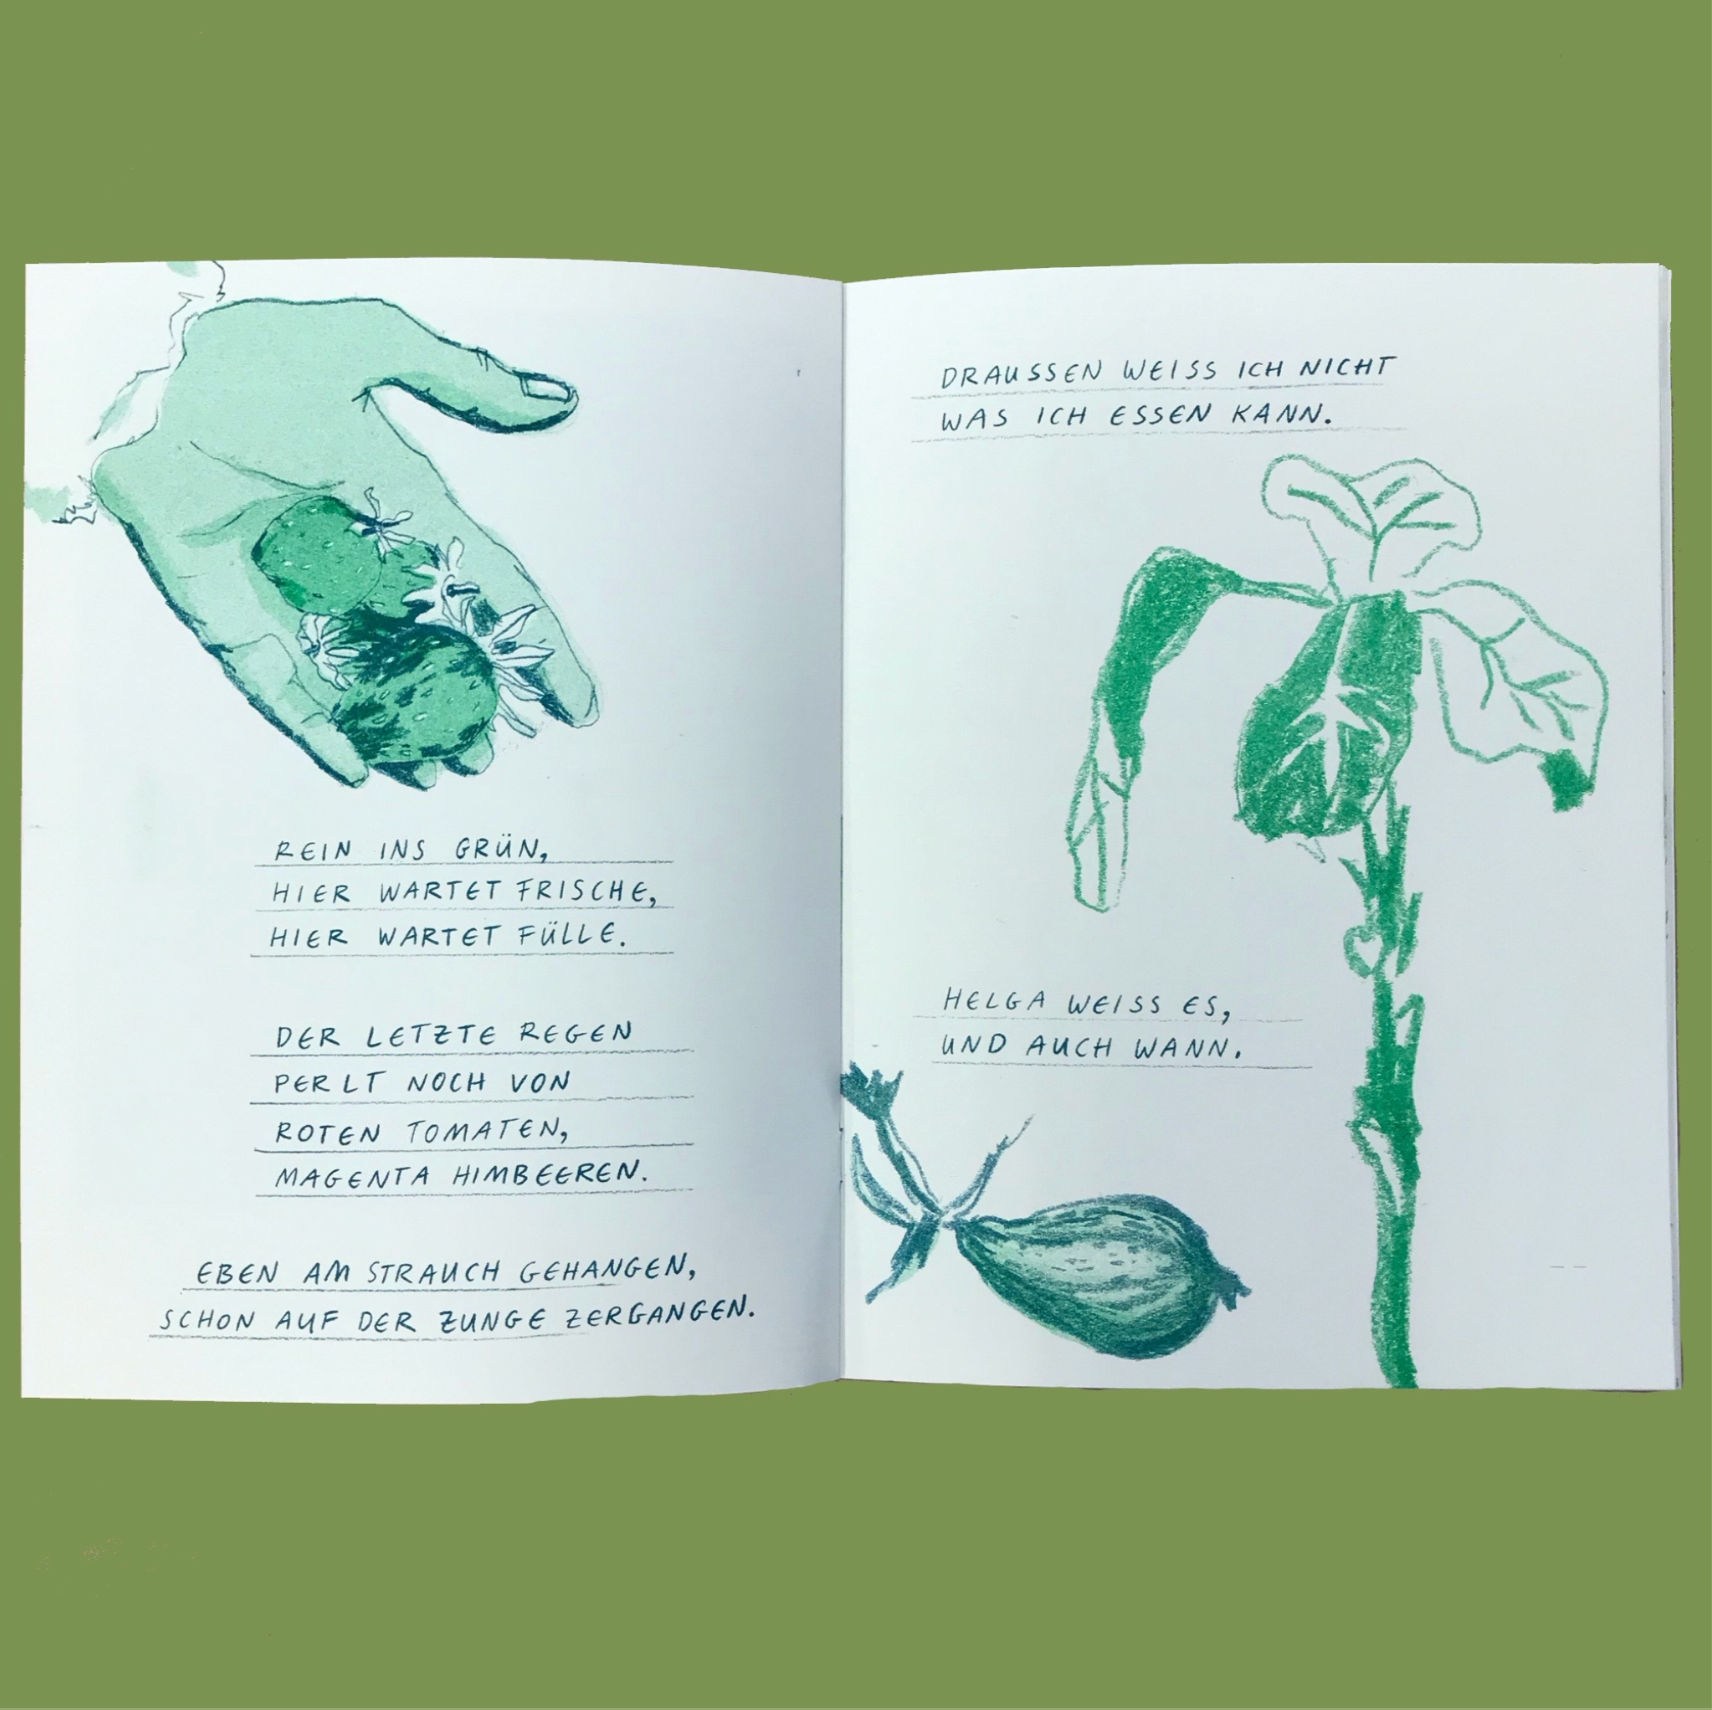 REIN INS GRÜN,
HIER WARTET FRISCHE,
HIER WARTET FÜLLE.
DER LETZTE REGEN
PERLT NOCH VON
ROTEN TOMATEN,
MAGENTA HIMBEEREN.
EBEN AM STRAUCH GEHANGEN,
SCHON AUF DER ZUNGE ZERGANGEN.
DRAUSSEN WEISS ICH NICHT
WAS ICH ESSEN KANN.
HELGA WEISS ES,
UND AUCH WANN.